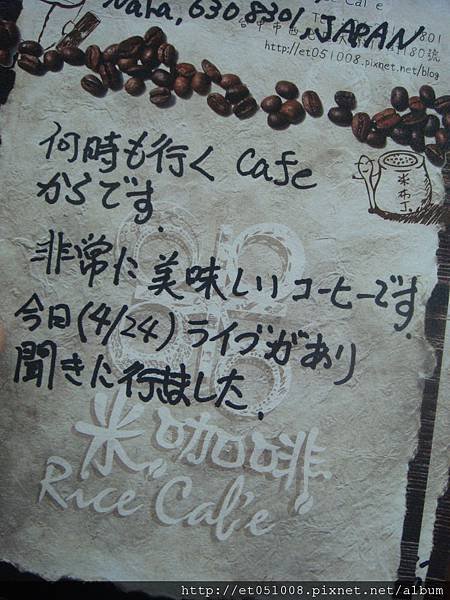 Cal'e
Nara, 630.8301, JAPAN
801
180號
http://et051008.pixnet.net/blog
米布丁
何時も行く Cafe
からです.
非常に美味しいコーヒーです.
今日(4/24)ライブがあり
聞きに行ました.
米咖啡
Rice Cal'e
http://et051008.pixnet.net/album